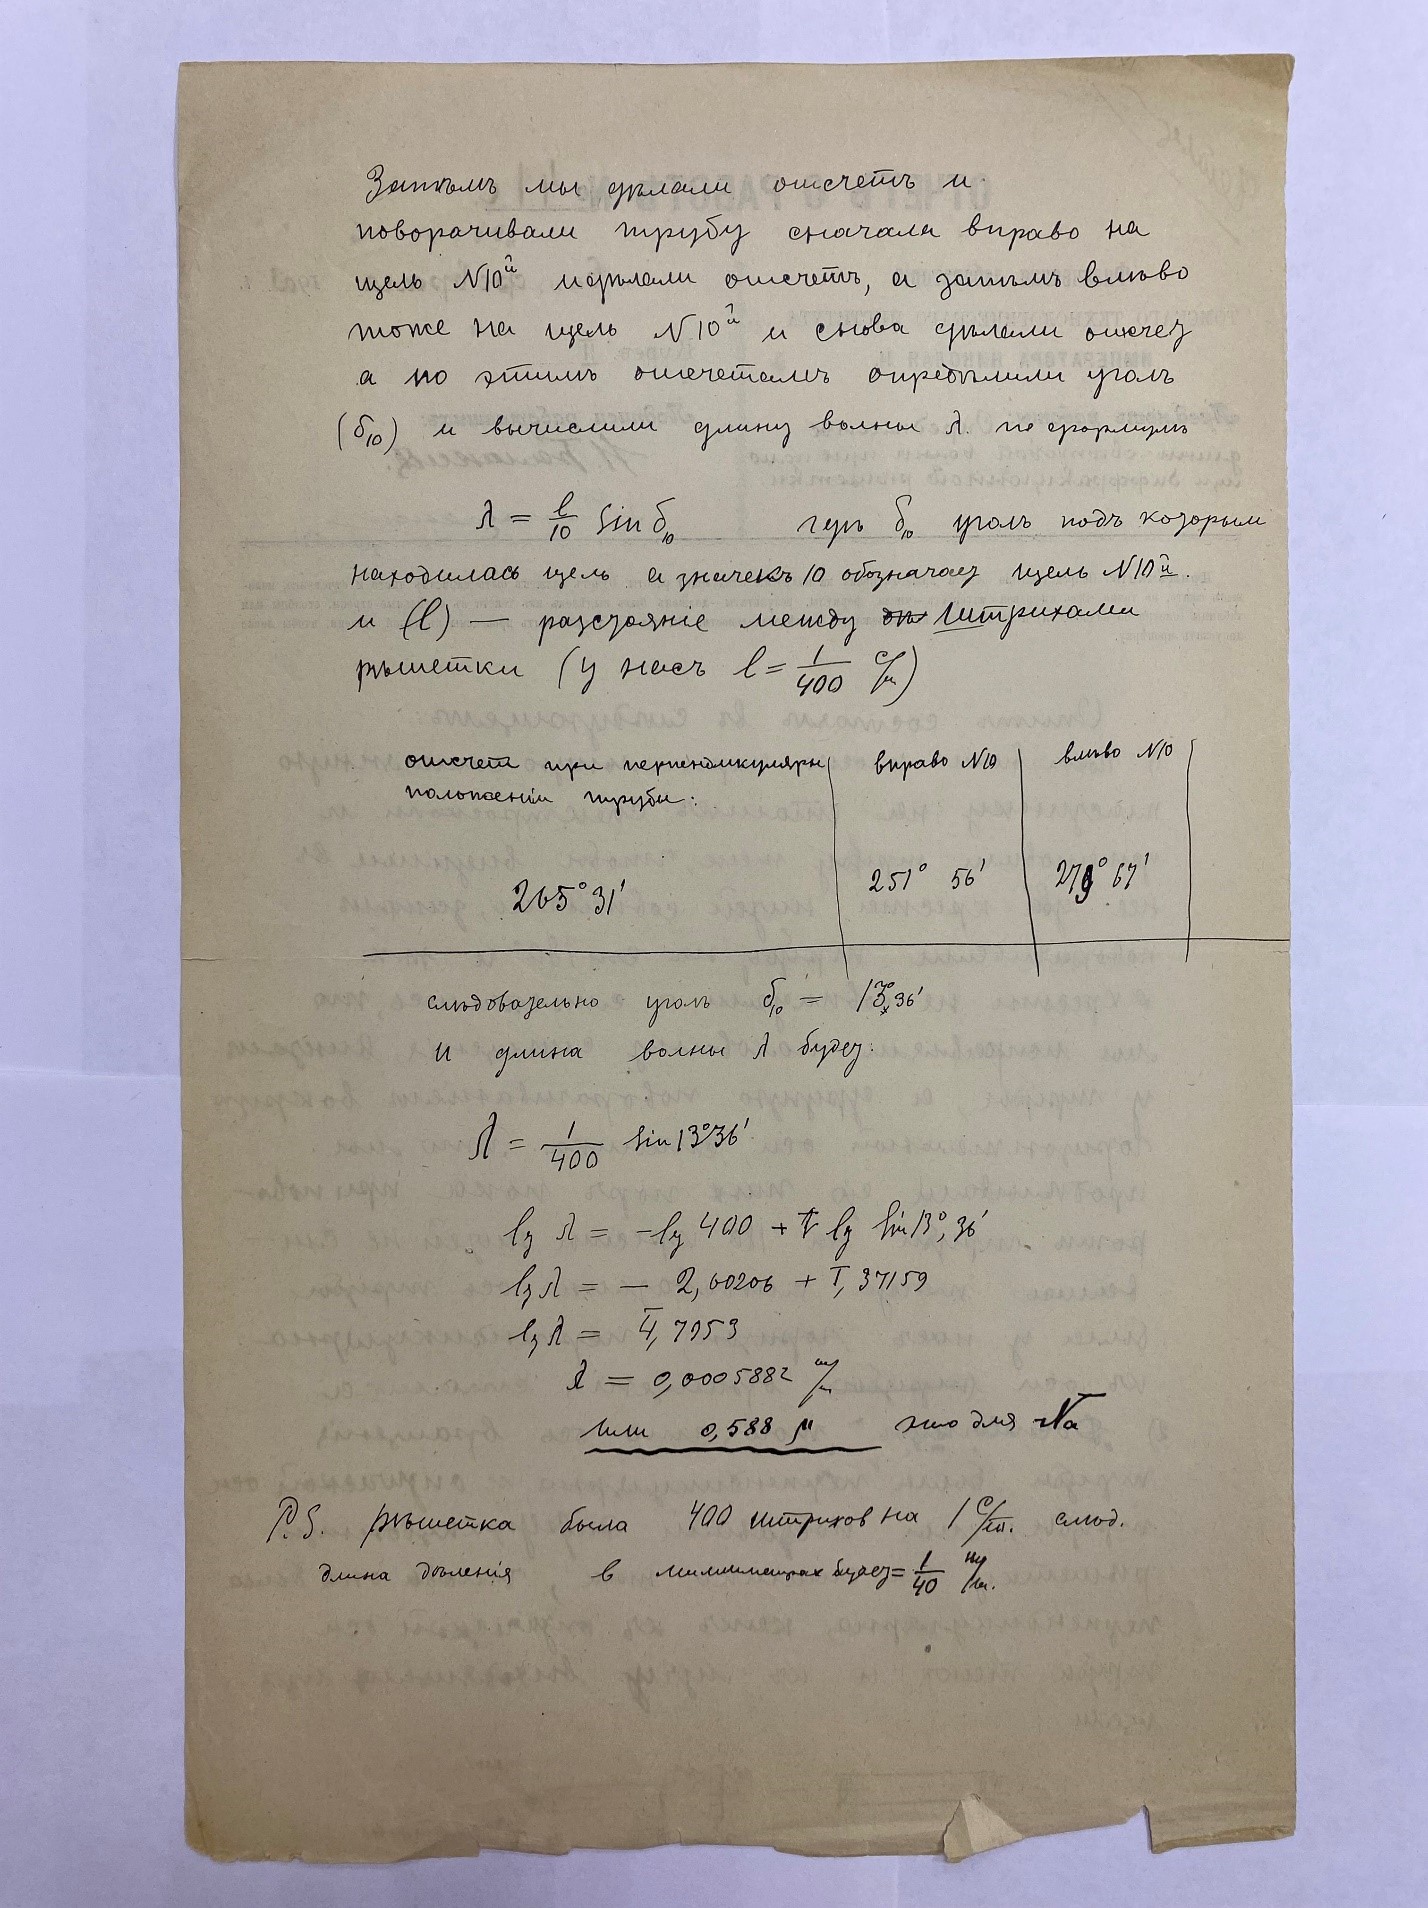 Затѣмъ мы дѣлали отсчетъ и
поворачивали трубу сначала вправо на
щель N10й и дѣлали отсчетъ, а затѣмъ влѣво
тоже на щель N10й и снова дѣлали отсчет
а по этимъ отсчетамъ опредѣлили уголъ
(δ₁₀) и вычислили длину волны λ. по формулѣ
λ = l/10 Sin δ₁₀ гдѣ δ₁₀ уголъ подъ которым
находилась щель а значекъ 10 обозначает щель N10й.
и (l) — разстояніе между штрихами
рѣшетки (у насъ l = 1/400 с/м)
отсчет при перпендикулярн вправо N10 влѣво N10
положеніи трубы:
265° 31' 251° 56' 279° 67'
слѣдовательно уголъ δ₁₀ = 13° 36'
и длина волны λ будет:
λ = 1/400 sin 13°36'
lg λ = - lg 400 + lg sin 13°, 36'
lg λ = — 2,60206 + 1̅,37159
lg λ = 4̅,7953
λ = 0,0005882 m/m
или 0,588 μ это для Na
P.S. рѣшетка была 400 штрихов на 1 с/m. слѣд.
длина дѣленія в миллиметрах будет = 1/40 m/m.